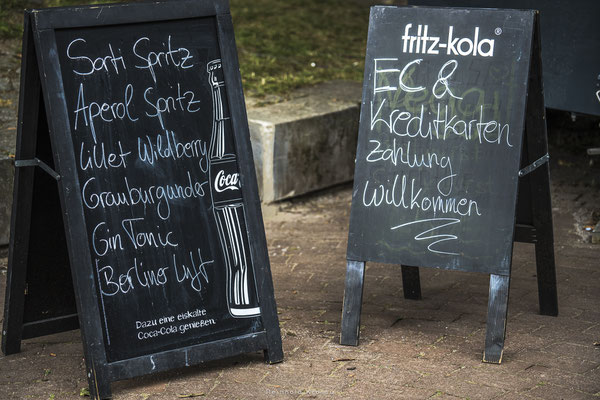 Sarti Spritz
Aperol Spritz
Lillet Wildberry
Grauburgunder
Gin Tonic
Berliner Luft
Coca
Dazu eine eiskalte
Coca-Cola genießen.
fritz-kola®
EC &
Kreditkarten
zahlung
willkommen